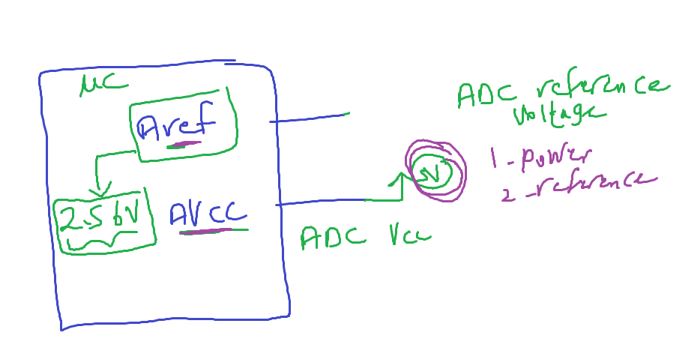 μC
Aref
2.56V
AVCC
ADC Vcc
5V
ADC reference
Voltage
1-power
2-reference